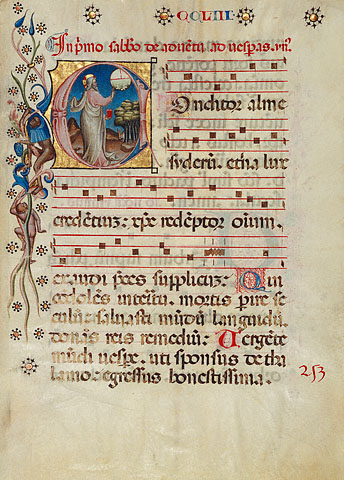 CCLIII
In p̄mo sabb̄o de adventu ad vesperas. ym̄.
Conditor alme
syderū. etna lux
credentiuz. xp̄e redēptor oīum.
exaudi p̄ces supplicuz. Qui
cōdolēs interitu. mortis perire se
culū. salvasti mūdū languidū.
donās reis remediū. Uergēte
mūdi vespe. uti sponsus de tha
lamo. egressus honestissima.
253